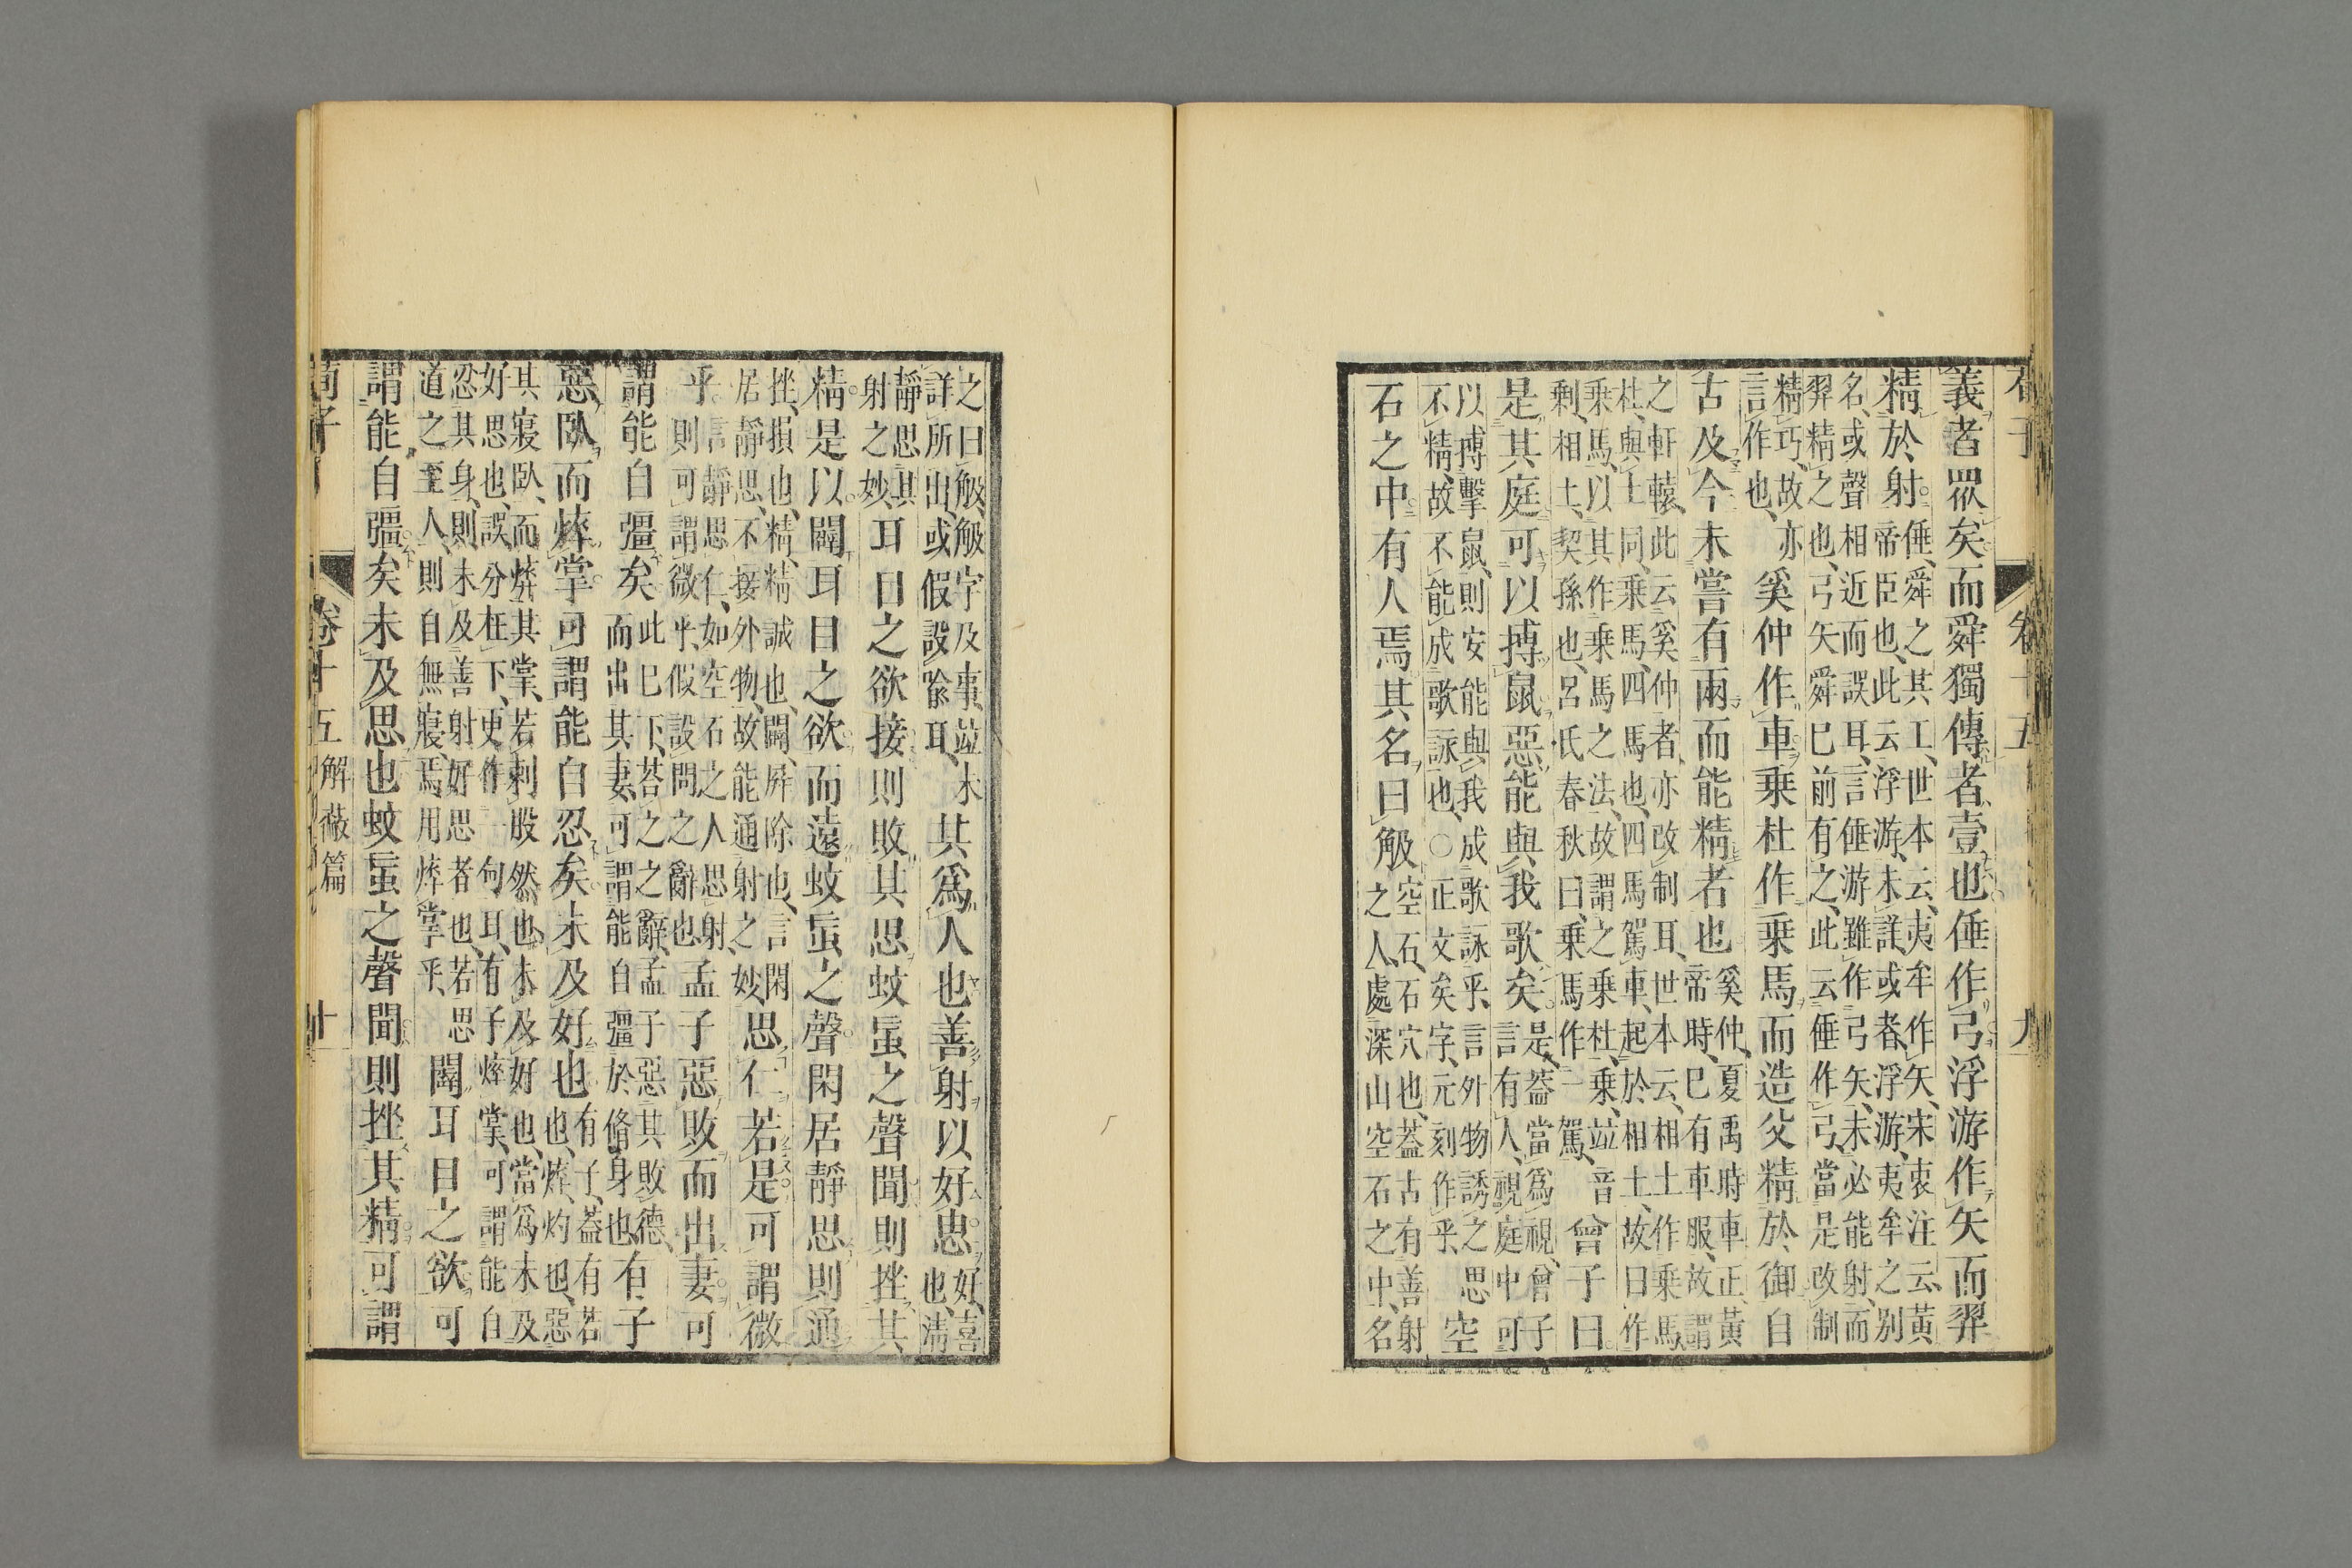 義者眾矣而舜獨傳者壹也倕作弓浮游作矢而羿
精於射
倕、舜之其工、世本云、夷牟作矢、宋衷注云、黃
帝臣也、此云浮游、未詳、或者浮游、夷牟之別
名、或聲相近而誤耳、言倕游雖作弓矢、未必能射、而
羿精之也、弓矢舜已前有之、此云倕作弓、當是改制
精巧、故亦
言作也、
奚仲作車乗杜作乗馬而造父精於御自
古及今未嘗有兩而能精者也
奚仲、夏禹時車正、黃
帝時、巳有車服、故謂
之軒轅、此云奚仲者、亦改制耳、世本云、相土作乗馬、
杜、與土同、乗馬、四馬也、四馬駕車、起於相土、故曰作
乗馬、以其作乗馬之法、故謂之乗杜、乗、竝音
剩、相土、契孫也、呂氏春秋曰、乗馬作一駕、
曾子曰
是其庭可以搏鼠惡能與我歌矣
是、蓋當爲視、曾子
言有人、視庭中可
以搏擊鼠、則安能與我成歌詠乎、言外物誘之思
不精、故不能成歌詠也、○正文矣字、元刻作乎、
空
石之中有人焉其名曰觙
空石、石穴也、蓋古有善射
之人、處深山空石之中、名
之曰觙、觙字及事、竝未
詳所出、或假設喩耳、
其爲人也善射以好思
好、喜
也、淸
靜思其
射之妙、
耳目之欲接則敗其思蚊䖟之聲聞則挫其
精是以闢耳目之欲而遠蚊䖟之聲閑居靜思則通
挫、損也、精、精誠也、闢、屏除也、言閑
居靜思、不接外物、故能通射之妙、
思仁若是可謂微
乎
言靜思仁、如空石之人思射、
則可謂微乎、假設問之辭也
孟子惡敗而出妻可
謂能自彊矣
此巳下、荅之之辭、孟子惡其敗德、
而出其妻、可謂能自彊於脩身也
有子
惡臥而焠掌可謂能自忍矣未及好也
有子、蓋有若
也、焠、灼也、惡
其寢臥、而焠其掌、若刺股然也、未及好也、當爲未及
好思也、誤分在下、更作一句耳、有子焠掌、可謂能自
忍其身、則未及善射好思者也、若思
道之至人、則自無寢、焉用焠掌乎、
闢耳目之欲可
謂能自彊矣未及思也蚊䖟之聲聞則挫其精可謂
荀子 卷十五 解蔽篇 十